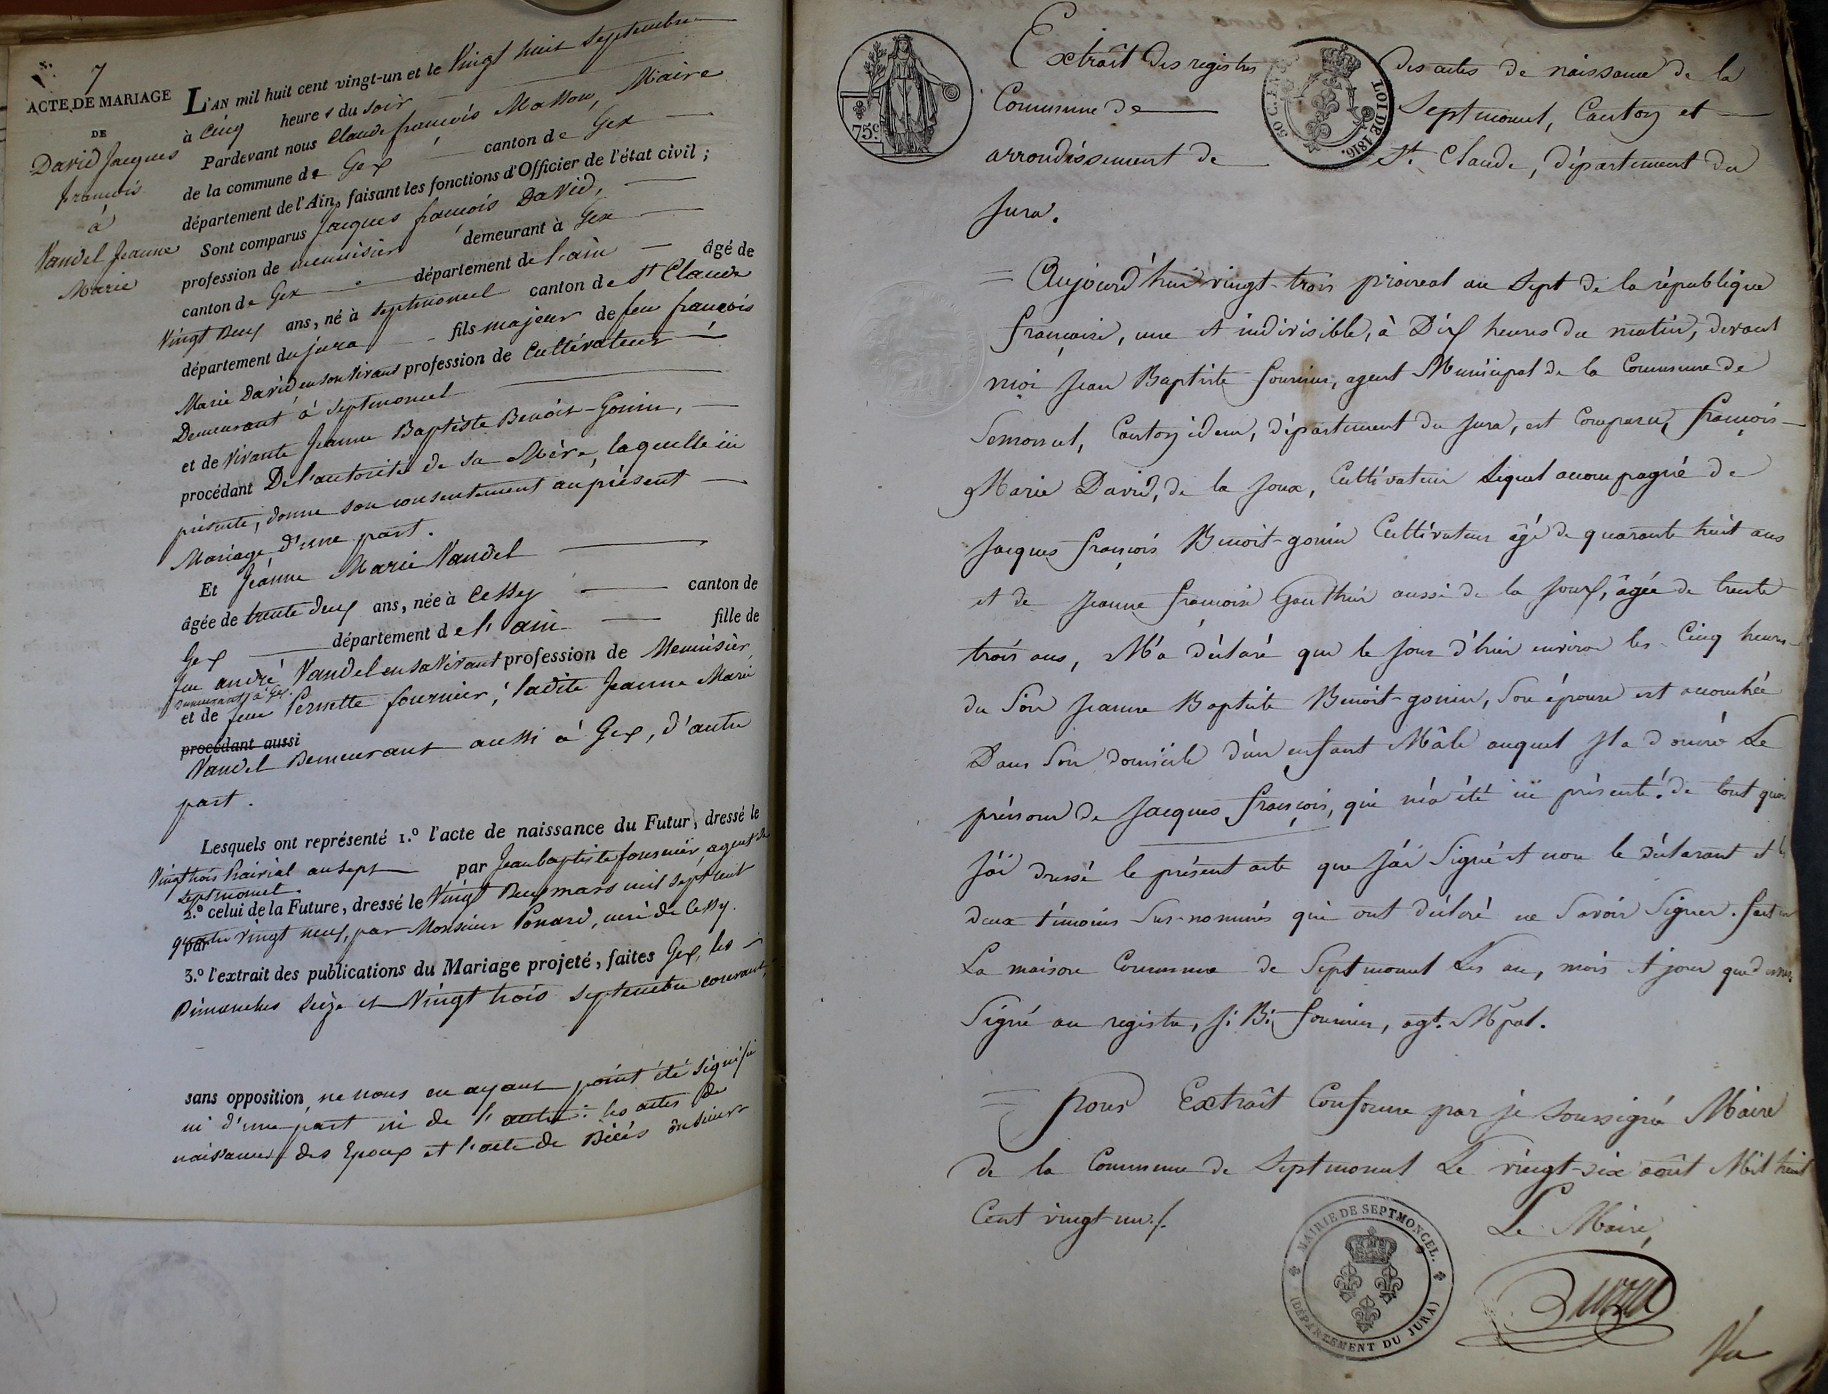 7
ACTE DE MARIAGE
DE
David Jacques
françois
à
Vandel Jeanne
Marie
L'AN mil huit cent vingt-un et le Vingt huit Septembre
à Cinq heures du soir
Pardevant nous Claude françois Masson, Maire
de la commune de Gex canton de Gex
département de l'Ain, faisant les fonctions d'Officier de l'état civil ;
Sont comparus Jacques françois David,
profession de menuisier demeurant à Gex
canton de Gex département de l'ain âgé de
Vingt Deux ans, né à Septmoncel canton de St Claude
département du jura fils majeur de feu françois
Marie David en son vivant profession de Cultivateur
Demeurant à Septmoncel
et de vivante Jeanne Baptiste Benoit-Gonin,
procédant De l'autorité de sa Mère, laquelle ici
présente, donne son consentement au présent
Mariage, d'une part.
Et Jeanne Marie Vandel
âgée de trente deux ans, née à Cessy canton de
Gex département de l'ain fille de
feu andré Vandel en son vivant profession de Menuisier
Demeurant à Gex.
et de feue Pernette fournier ; ladite Jeanne Marie
procédant aussi
Vandel Demeurant aussi à Gex, d'autre
part.
Lesquels ont représenté 1.º l'acte de naissance du Futur, dressé le
Vingt trois Prairial an sept par Jean baptiste fournier, agent de
Septmoncel
2.º celui de la Future, dressé le Vingt Deux mars mil sept cent
quatre vingt neuf, par Monsieur Ponard, curé de Cessy.
par
3.º l'extrait des publications du Mariage projeté, faites Gex, les
Dimanches Seize et Vingt trois Septembre courant,
sans opposition, ne nous en ayant point été signifié
ni d'une part ni de l'autre : les actes de
naissance des Epoux et l'acte de Décés
75c
50 C. LOI DE 1816.
Extrait des registres des actes de naissance de la
Commune de Septmoncel, Canton et
arrondissement de St. Claude, département du
Jura.
= Aujourd'hui vingt-trois prairéal an Sept de la république
française, une et indivisible, à Dix heures du matin, devant
moi Jean Baptiste fournier, agent Municipal de la Commune de
Semoncel, Canton idem, département du Jura, est Comparu, françois-
Marie David, de la Joux, Cultivateur Lequel accompagné de
Jacques françois Benoit-gonin Cultivateur âgé de quarante huit ans
et de Jeanne françoise Gauthier aussi de la Joux, âgée de trente
trois ans, M'a déclaré que le Jour d'hier environ les Cinq heures
du Soir Jeanne Baptiste Benoit-gonin, Son épouse est accouchée
Dans Son domicile d'un enfant Mâle auquel Il a donné Le
prénom de Jacques françois, qui m'a été ici présenté. de tout quoi
J'ai dressé le présent acte que J'ai Signé et non le déclarant et les
deux témoins Sus-nommés qui ont déclaré ne Savoir Signer. fait en
La maison Commune de Septmoncel Les an, mois et jour que dessus
Signé au registre, J: B: fournier, agt. Mpal.
= Pour Extrait Conforme par je Soussigné Maire
de la Commune de Septmoncel Le vingt-six août Mil huit
Cent vingt-un./.
Le Maire,
MAIRIE DE SEPTMONCEL.
(DÉPARTEMENT DU JURA)
Vu